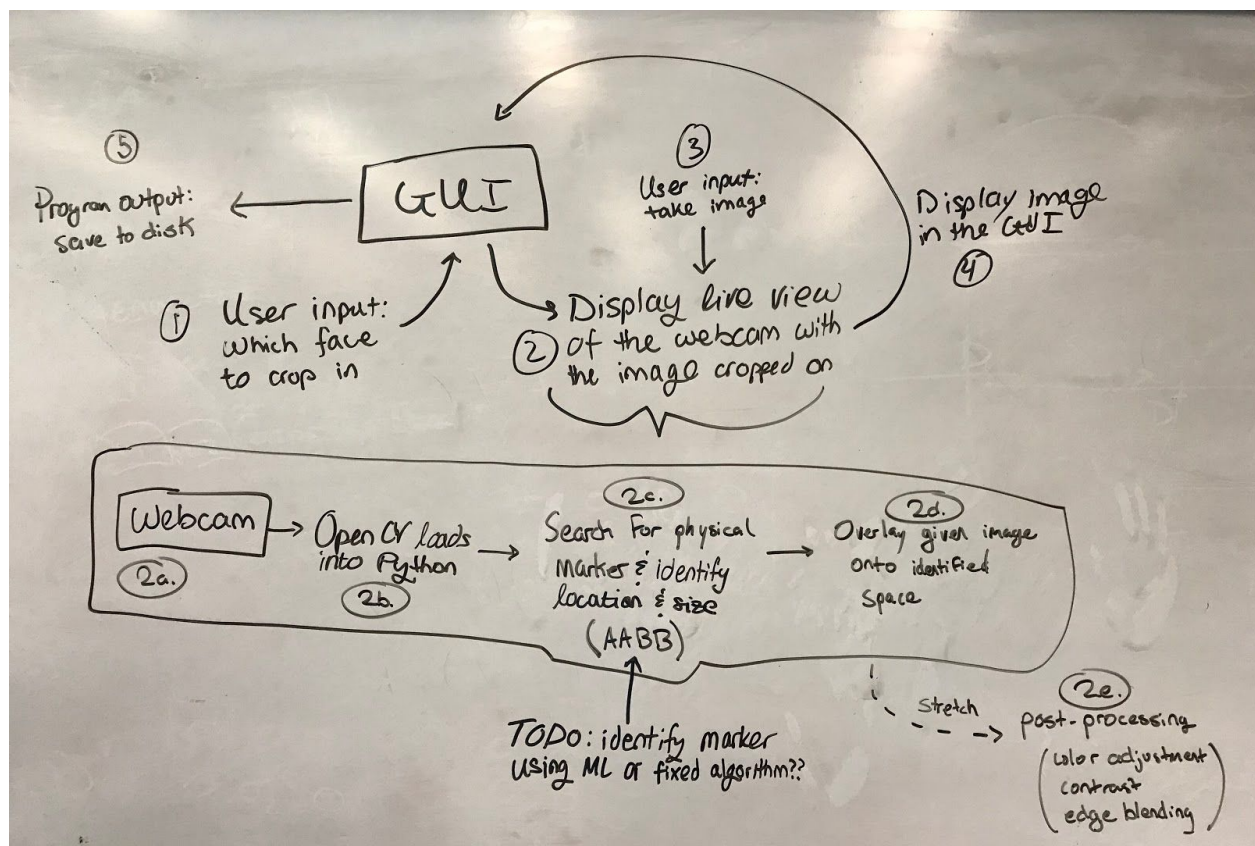 5
Program output:
save to disk
GUI
3
User input:
take image
Display image
in the GUI
4
1
User input:
which face
to crop in
2
Display live view
of the webcam with
the image cropped on
Webcam
2a.
Open CV loads
into Python
2b.
2c.
Search For physical
marker & identify
location & size
(AABB)
2d.
Overlay given image
onto identified
space
TODO: identify marker
using ML or fixed algorithm??
Stretch
2e.
post-processing
(color adjustment
contrast
edge blending)